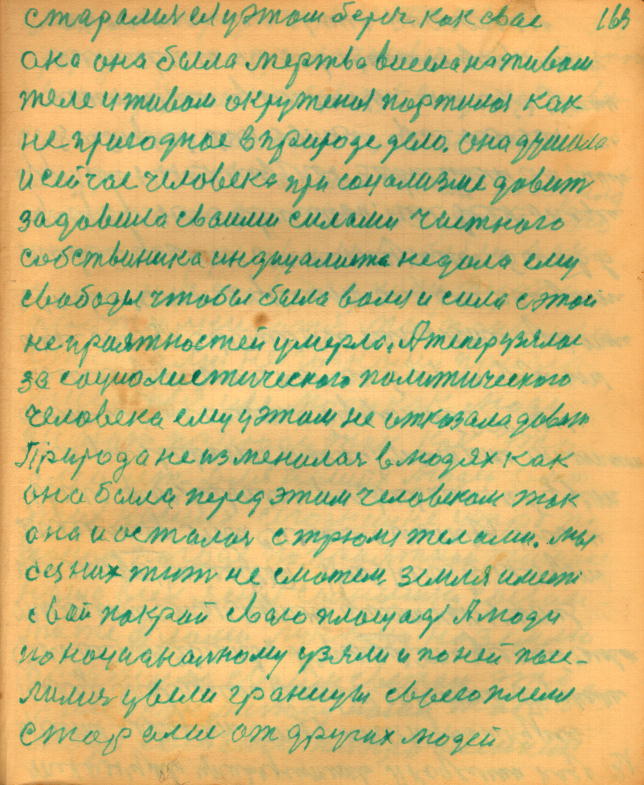 старался ей у этом берег как свае 163
ока она была мертва висела на живом
теле и живом окружения портился как
не пригодное в природе дело. она душила
и сейчас человека при социализме довит
задовила своими силами частного
собственика индицалиста недала ему
свабоды чтобы была воля и сила с этой
неприятностей умерло. А теперь узялас
за социолистического политического
человека ему у этом не отказала довит
Природа не изменилас в людях как
она была перед этим человеком так
она и осталас с трюмя телами. мы
без них жит не сможем земля имеет
свой покрой сваю площад А люди
по националному узяли и по ней посе-
лилис увели границы своего племя
старалис от других людей